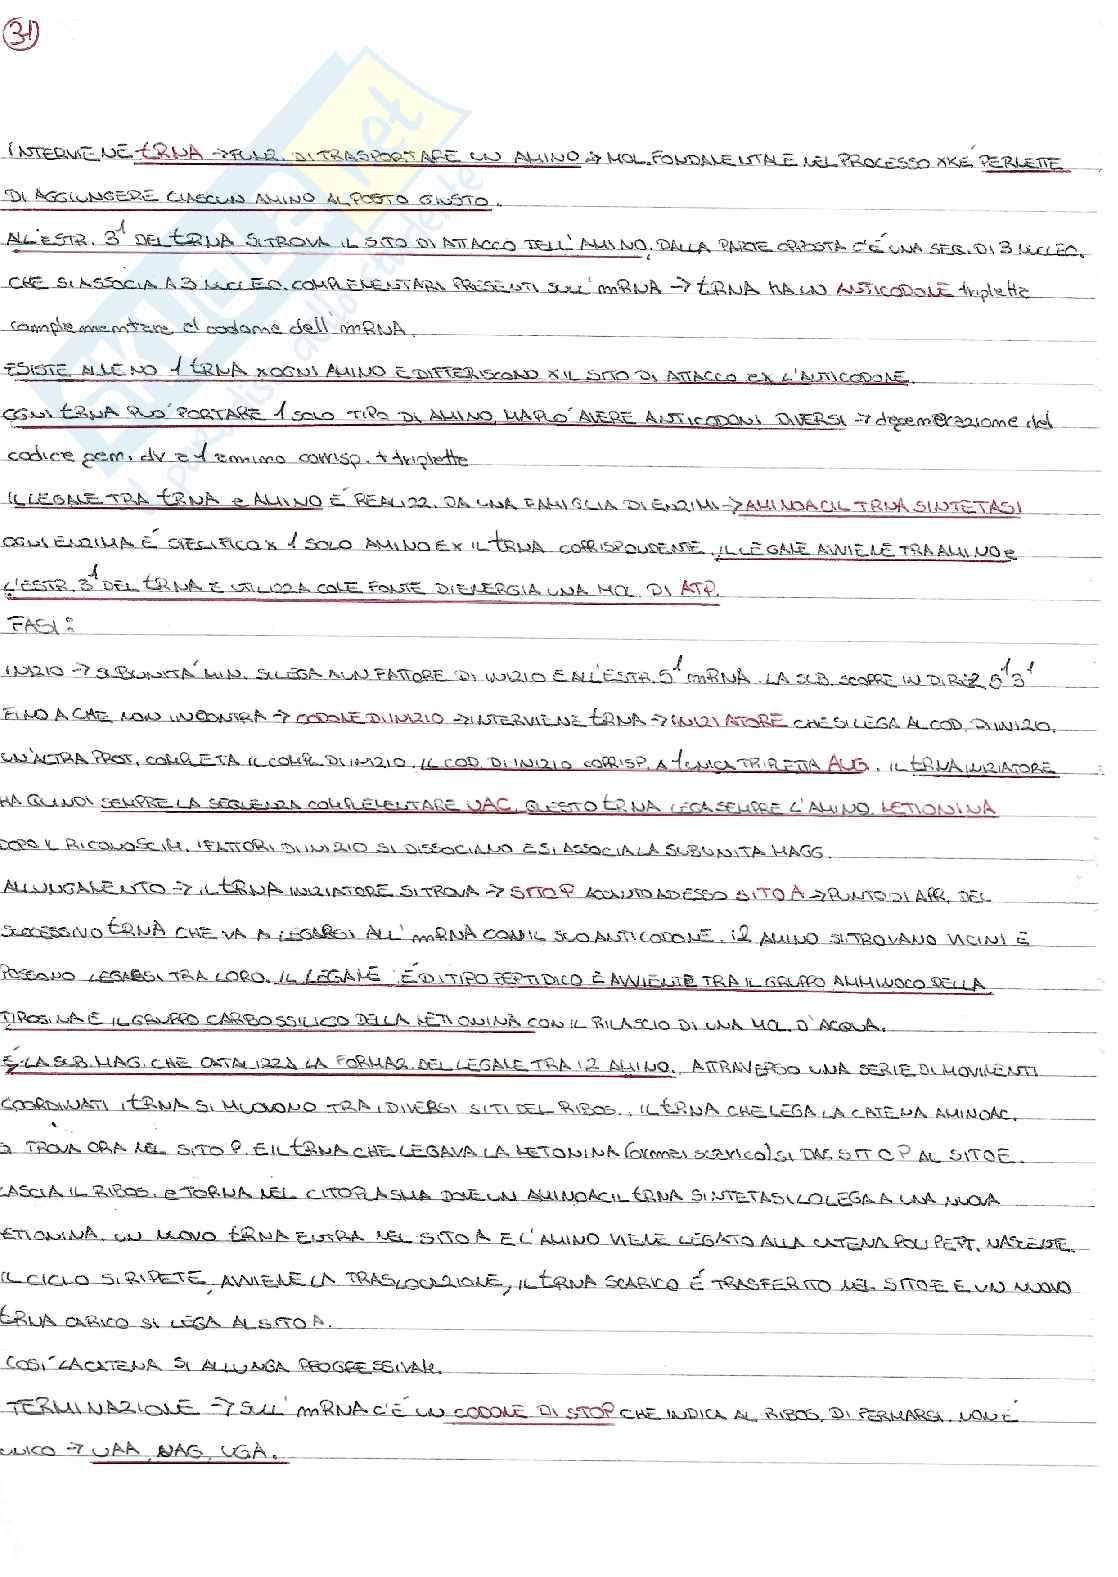 31
INTERVIENE tRNA → FUNZ. DI TRASPORTARE UN AMINO → MOL. FONDAMENTALE NEL PROCESSO XKÉ PERMETTE
DI AGGIUNGERE CIASCUN AMINO AL POSTO GIUSTO.
ALL'ESTR. 3' DEL tRNA SI TROVA IL SITO DI ATTACCO DELL'AMINO, DALLA PARTE OPPOSTA C'È UNA SEQ. DI 3 NUCLEO.
CHE SI ASSOCIA A 3 NUCLEO. COMPLEMENTARI PRESENTI SULL'mRNA → tRNA HA UN ANTICODONE tripletta
complementare al codone dell'mRNA.
ESISTE ALMENO 1 tRNA X OGNI AMINO E DIFFERISCONO X IL SITO DI ATTACCO E X L'ANTICODONE.
OGNI tRNA PUÒ PORTARE 1 SOLO TIPO DI AMINO, MA PUÒ AVERE ANTICODONI DIVERSI → degenerazione del
codice gen. dv a 1 amino corrisp. + triplette
IL LEGAME TRA tRNA e AMINO È REALIZZ. DA UNA FAMIGLIA DI ENZIMI → AMINOACIL TRNA SINTETASI
OGNI ENZIMA È SPECIFICO X 1 SOLO AMINO E X IL tRNA CORRISPONDENTE, IL LEGAME AVVIENE TRA AMINO e
L'ESTR. 3' DEL tRNA E UTILIZZA COME FONTE DI ENERGIA UNA MOL. DI ATP.
FASI:
INIZIO → SUBUNITÀ MIN. SI LEGA A UN FATTORE DI INIZIO E ALL'ESTR. 5' mRNA. LA SUB. SCORRE IN DIREZ. 5' 3'
FINO A CHE NON INCONTRA → CODONE DI INIZIO → INTERVIENE tRNA → INIZIATORE CHE SI LEGA AL COD. DI INIZIO.
UN'ALTRA PROT. COMPLETA IL COMPL. DI INIZIO. IL COD. DI INIZIO CORRISP. A 1 UNICA TRIPLETTA AUG. IL tRNA INIZIATORE
HA QUINDI SEMPRE LA SEQUENZA COMPLEMENTARE UAC, QUESTO tRNA LEGA SEMPRE L'AMINO. METIONINA
DOPO IL RICONOSCIM. I FATTORI DI INIZIO SI DISSOCIANO E SI ASSOCIA LA SUBUNITÀ MAGG.
ALLUNGAMENTO → IL tRNA INIZIATORE SI TROVA → SITO P ACCANTO AD ESSO SITO A → PUNTO DI APP. DEL
SUCCESSIVO tRNA CHE VA A LEGARSI ALL'mRNA CON IL SUO ANTICODONE. I 2 AMINO SI TROVANO VICINI E
POSSONO LEGARSI TRA LORO. IL LEGAME È DI TIPO PEPTIDICO E AVVIENE TRA IL GRUPPO AMMINICO DELLA
TIROSINA E IL GRUPPO CARBOSSILICO DELLA METIONINA CON IL RILASCIO DI UNA MOL. D'ACQUA.
È LA SUB. MAG. CHE CATALIZZA LA FORMAZ. DEL LEGAME TRA I 2 AMINO. ATTRAVERSO UNA SERIE DI MOVIMENTI
COORDINATI, I tRNA SI MUOVONO TRA I DIVERSI SITI DEL RIBOS.. IL tRNA CHE LEGA LA CATENA AMINOAC.
SI TROVA ORA NEL SITO P. E IL tRNA CHE LEGAVA LA METIONINA (ormai scarico) SI DAL SITO P AL SITO E.
LASCIA IL RIBOS. e TORNA NEL CITOPLASMA DOVE UN AMINOACIL tRNA SINTETASI LO LEGA A UNA NUOVA
METIONINA. UN NUOVO tRNA ENTRA NEL SITO A E L'AMINO VIENE LEGATO ALLA CATENA POLIPEPT. NASCENTE.
IL CICLO SI RIPETE, AVVIENE LA TRASLOCAZIONE, IL tRNA SCARICO È TRASFERITO NEL SITO E E UN NUOVO
tRNA CARICO SI LEGA AL SITO A.
COSÌ LA CATENA SI ALLUNGA PROGRESSIVAM.
TERMINAZIONE → SULL'mRNA C'È UN CODONE DI STOP CHE INDICA AL RIBOS. DI FERMARSI. NON È
UNICO → UAA, UAG, UGA.